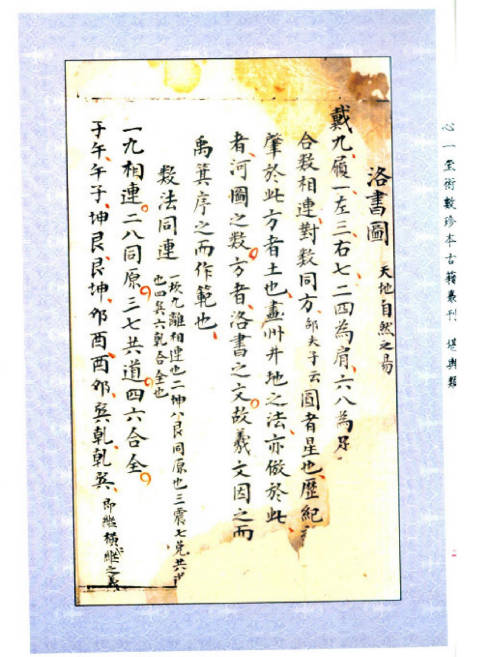 心一堂術數珍本古籍叢刊 堪輿類
洛書圖 天地自然之易
戴九、履一、左三、右七、二四為肩、六八為足、
合數相連、對數同方、邵夫子云圓者星也、歷紀之
肇於此、方者土也、畫州井地之法、亦倣於此、
者、河圖之數、方者、洛書之文、故羲文因之而
禹箕序之而作範也、
數法同連 一坎九離相連也二坤八艮同原也三震七兌共道
也四巽六乾合全也
一九相連。二八同原。三七共道。四六合全。
子午、午子、坤艮、艮坤、卯酉、酉卯、巽乾、乾巽、即縱橫之義